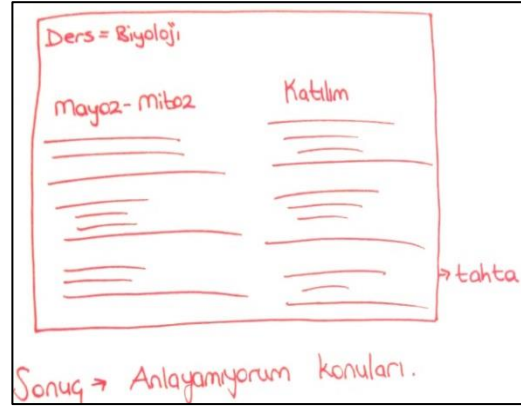 Ders = Biyoloji
Mayoz - Mitoz
Katılım
→ tahta
Sonuç → Anlayamıyorum konuları.